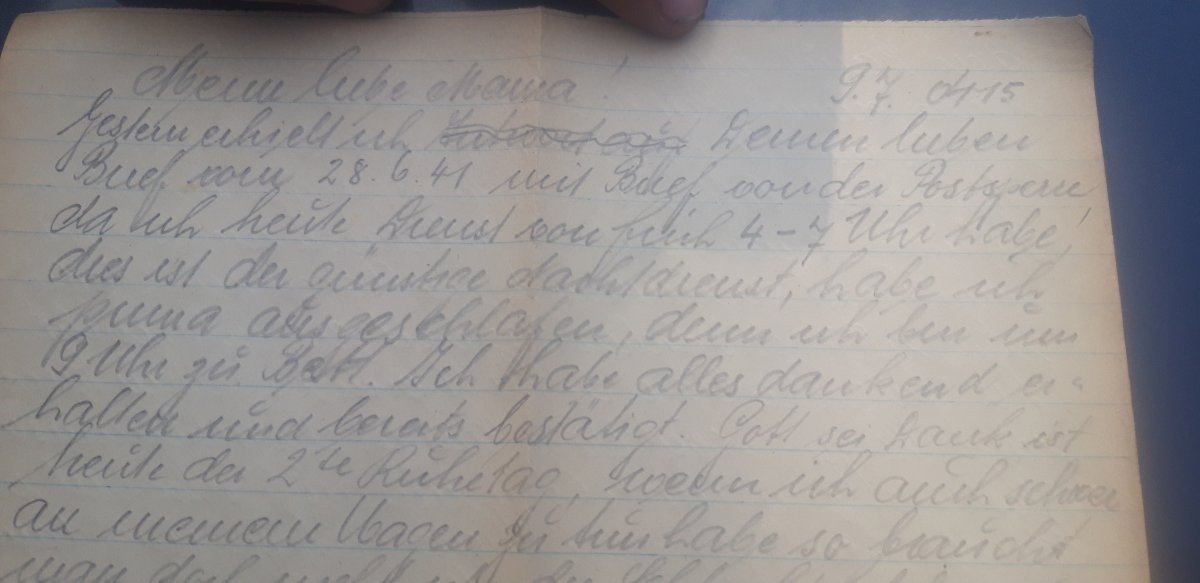 Meine liebe Mama! 9.7. 0415
Gestern erhielt ich Deinen lieben
Brief vom 28.6.41 mit Brief von der Postsperre,
da ich heute Dienst von früh 4-7 Uhr habe,
dies ist der günstige Nachtdienst, habe ich
prima ausgeschlafen, denn ich bin um
9 Uhr zu Bett. Ich habe alles dankend er-
halten und bereits bestätigt. Gott sei Dank ist
heute der 2te Ruhetag, wenn ich auch schwer
an meinem Wagen zu tun habe so braucht
man doch nicht